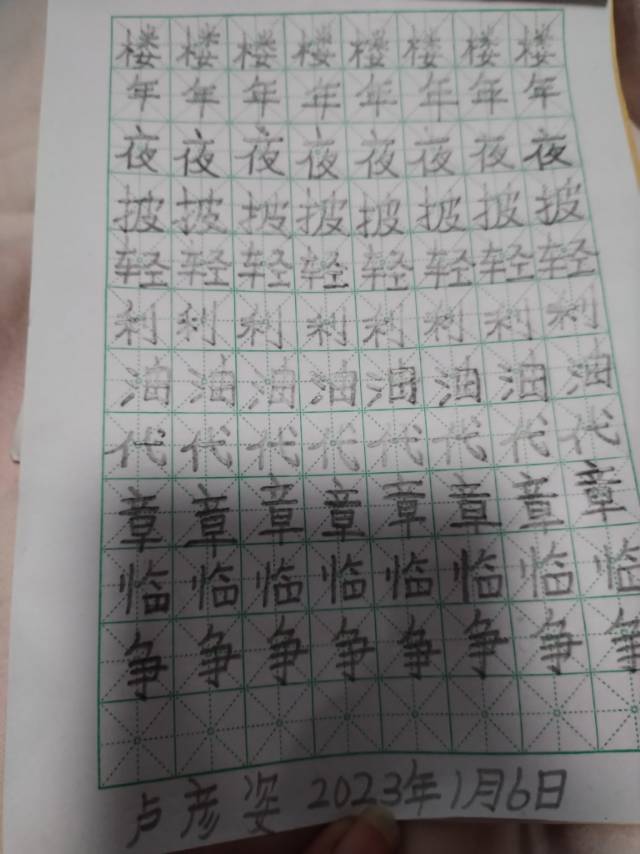 楼楼楼楼楼楼楼楼
年年年年年年年年
夜夜夜夜夜夜夜夜
披披披披披披披披
轻轻轻轻轻轻轻轻
利利利利利利利利
油油油油油油油油
代代代代代代代代
章章章章章章章章
临临临临临临临临
争争争争争争争争
卢彦姿 2023年1月6日